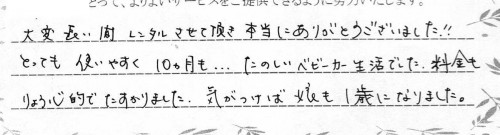 とって、よりよいサービスをご提供できるように努力いたします。
大変長い間 レンタルさせて頂き 本当にありがとうございました!!
とっても 使いやすく 10ヵ月も… たのしいベビーカー生活でした. 料金も
りょう心的でたすかりました. 気がつけば 娘も 1歳になりました。